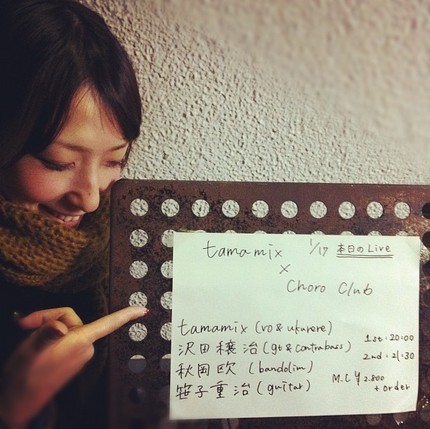 tamamix 1/17 本日のLive
×
Choro Club
tamamix (vo & ukurere)
沢田穣治 (gt & contrabass)
秋岡欧 (bandolim)
笹子重治 (guitar)
1st・20:00
2nd・21:30
M.C ¥2.800
+ order